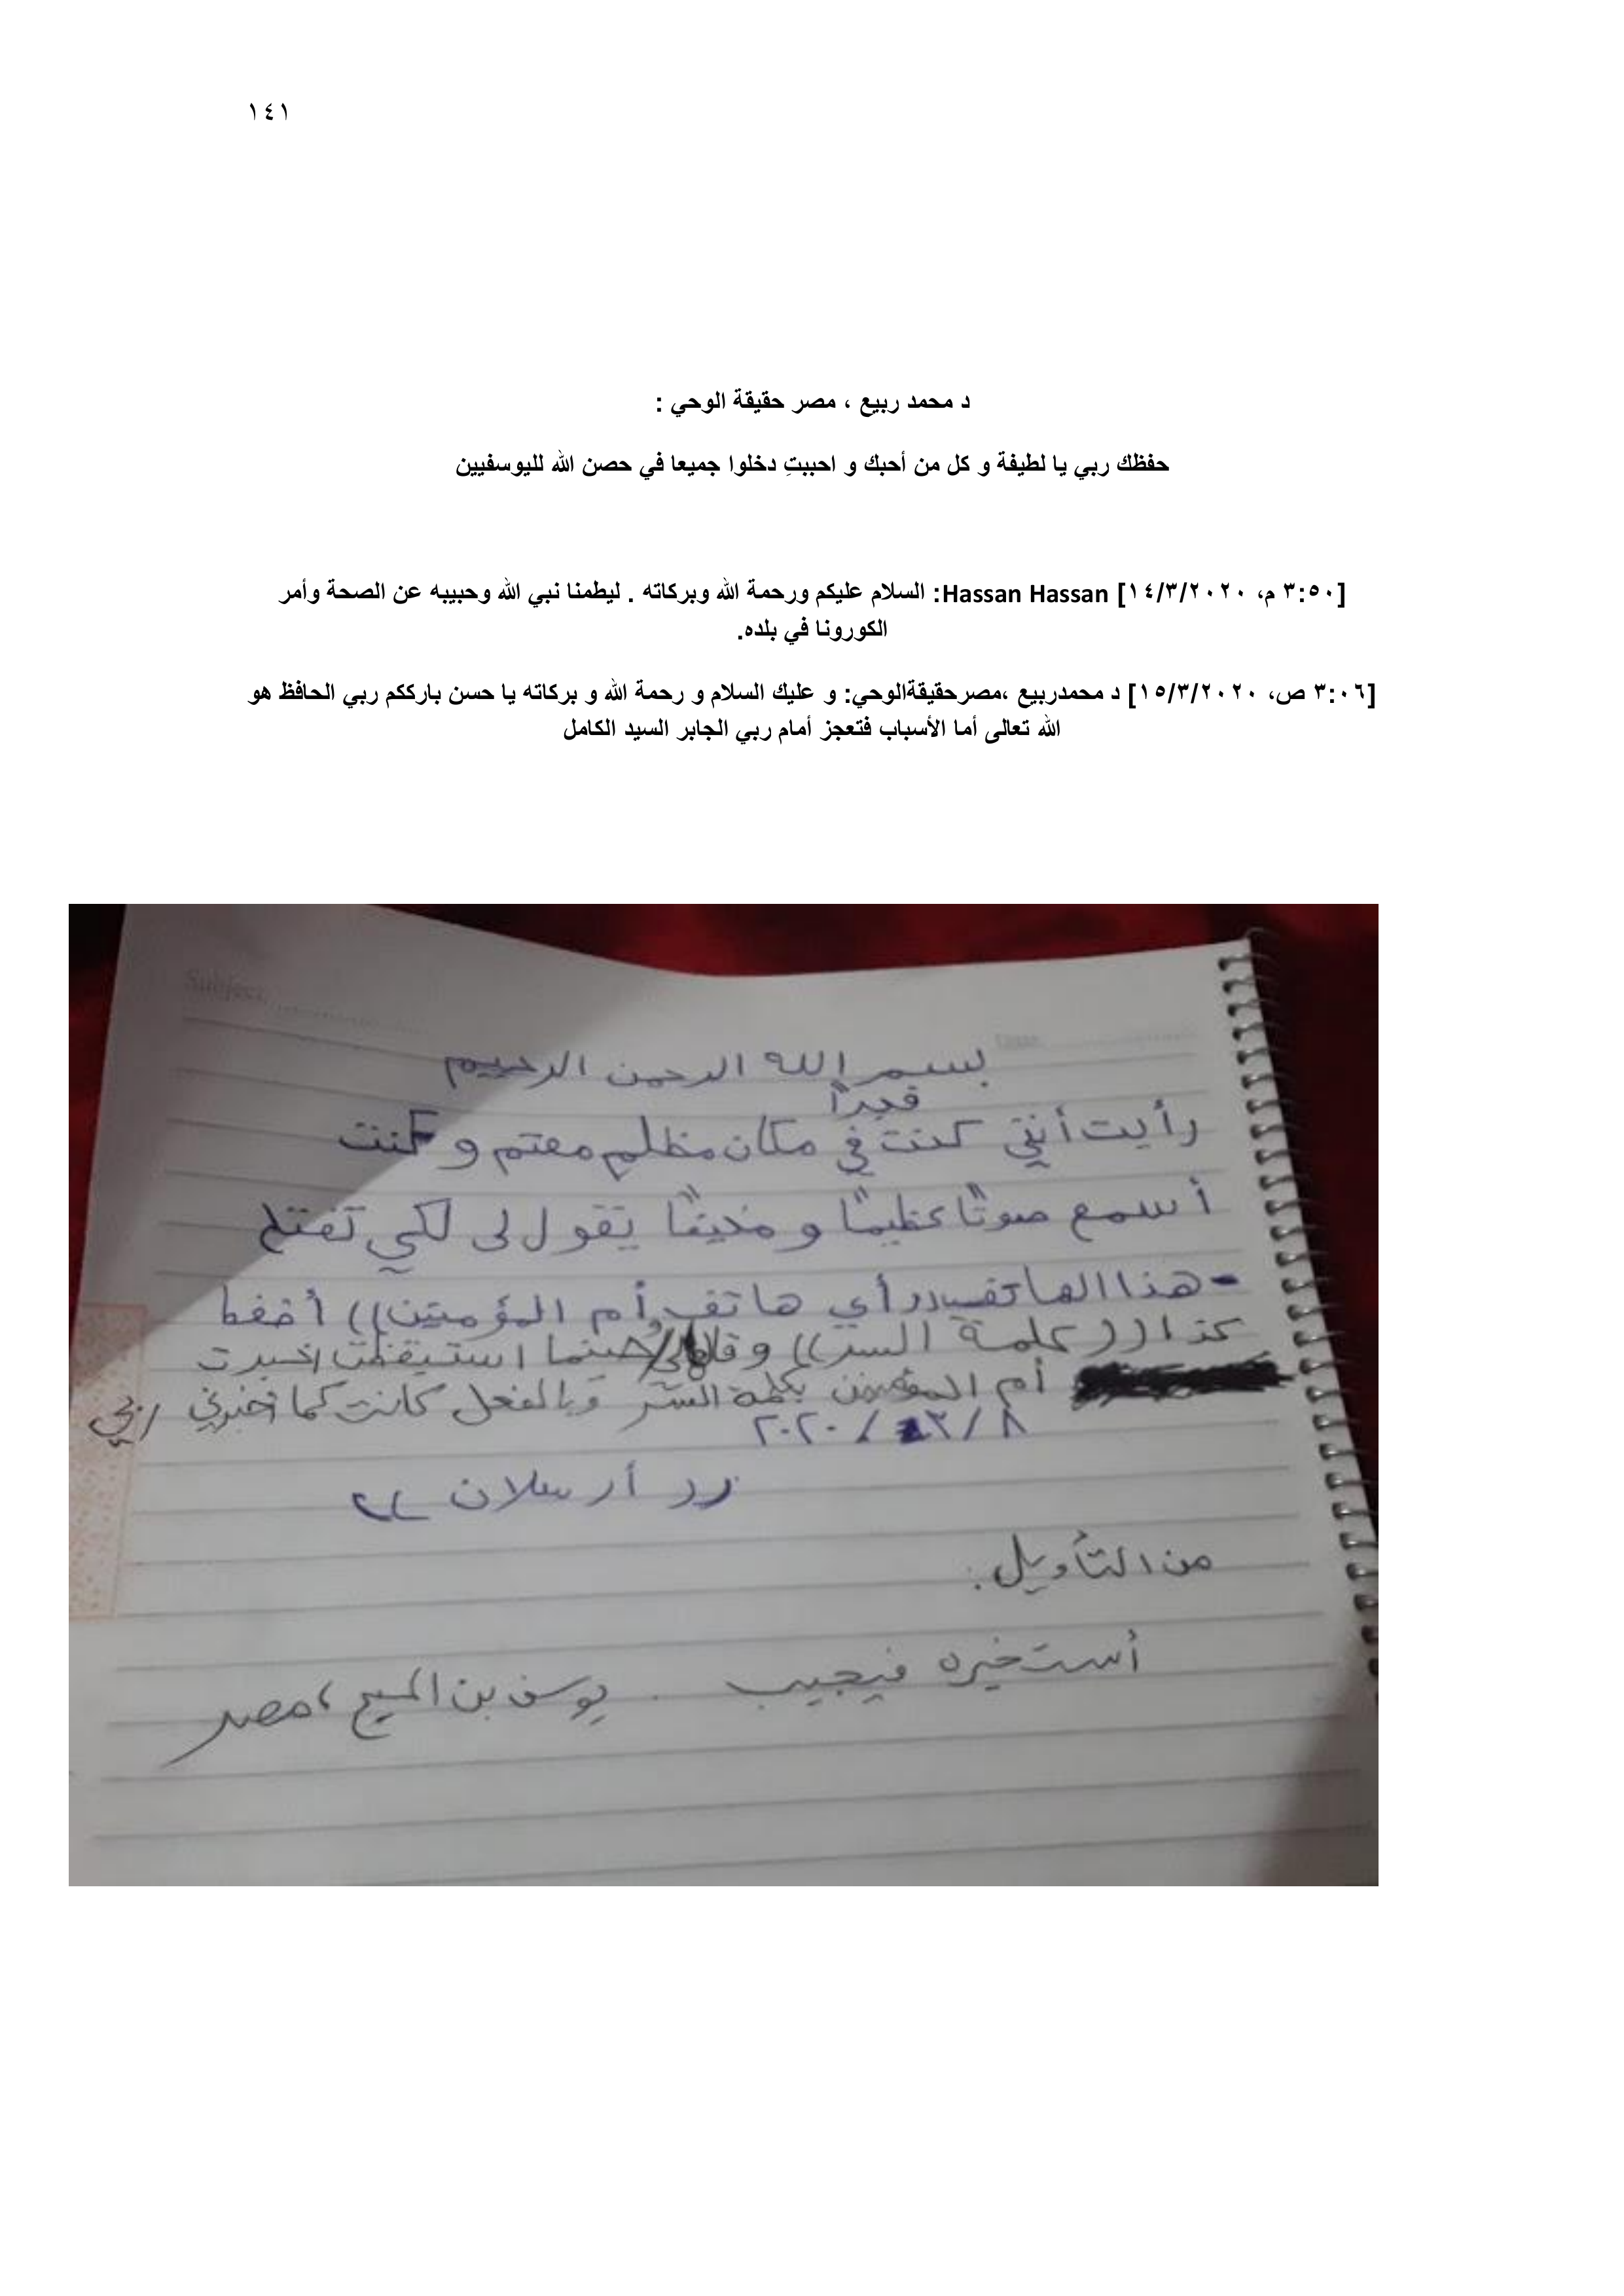 ١٤١
د محمد ربيع ، مصر حقيقة الوحي :
حفظك ربي يا لطيفة و كل من أحبك و احببتِ دخلوا جميعا في حصن الله لليوسفيين
[٣:٥٠ م، ١٤/٣/٢٠٢٠] Hassan Hassan: السلام عليكم ورحمة الله وبركاته . ليطمنا نبي الله وحبيبه عن الصحة وأمر
الكورونا في بلده.
[٣:٠٦ ص، ١٥/٣/٢٠٢٠] د محمدربيع ،مصرحقيقةالوحي: و عليك السلام و رحمة الله و بركاته يا حسن بارككم ربي الحافظ هو
الله تعالى أما الأسباب فتعجز أمام ربي الجابر السيد الكامل
Subject
Date
بسم الله الرحمن الرحيم
فجراً
رأيت أنني كنت في مكان مظلم معتم و كنت
أسمع صوتًا عظيمًا و مخيفًا يقول لى لكي تفتح
هذا الهاتف ((أي هاتف أم المؤمنين)) أضغط
كذا ((كلمة السر)) حينما استيقظت اخبرت
أم المؤمنين بكلمة السر وبالفعل كانت كما أخبرني ربي
٨/٣/٢٠٢٠
((أرسلان))
من التأويل:
أستخيره فيجيب . يوسف بن المسيح ، مصر